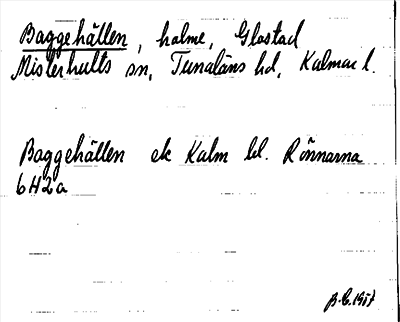 Baggehällen, holme, Glostad
Misterhults sn, Tunaläns hd, Kalmar l.
Baggehällen ek Kalm bl. Rönnarna
6H2a
B.C. 1957